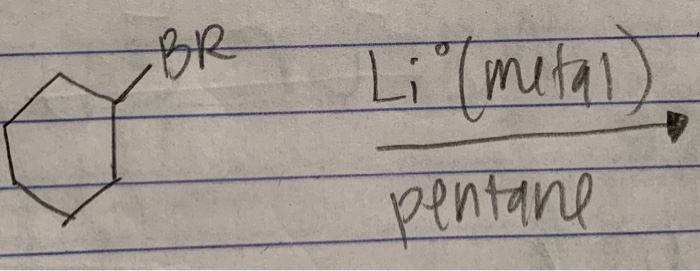 BR
Li°(metal)
pentane